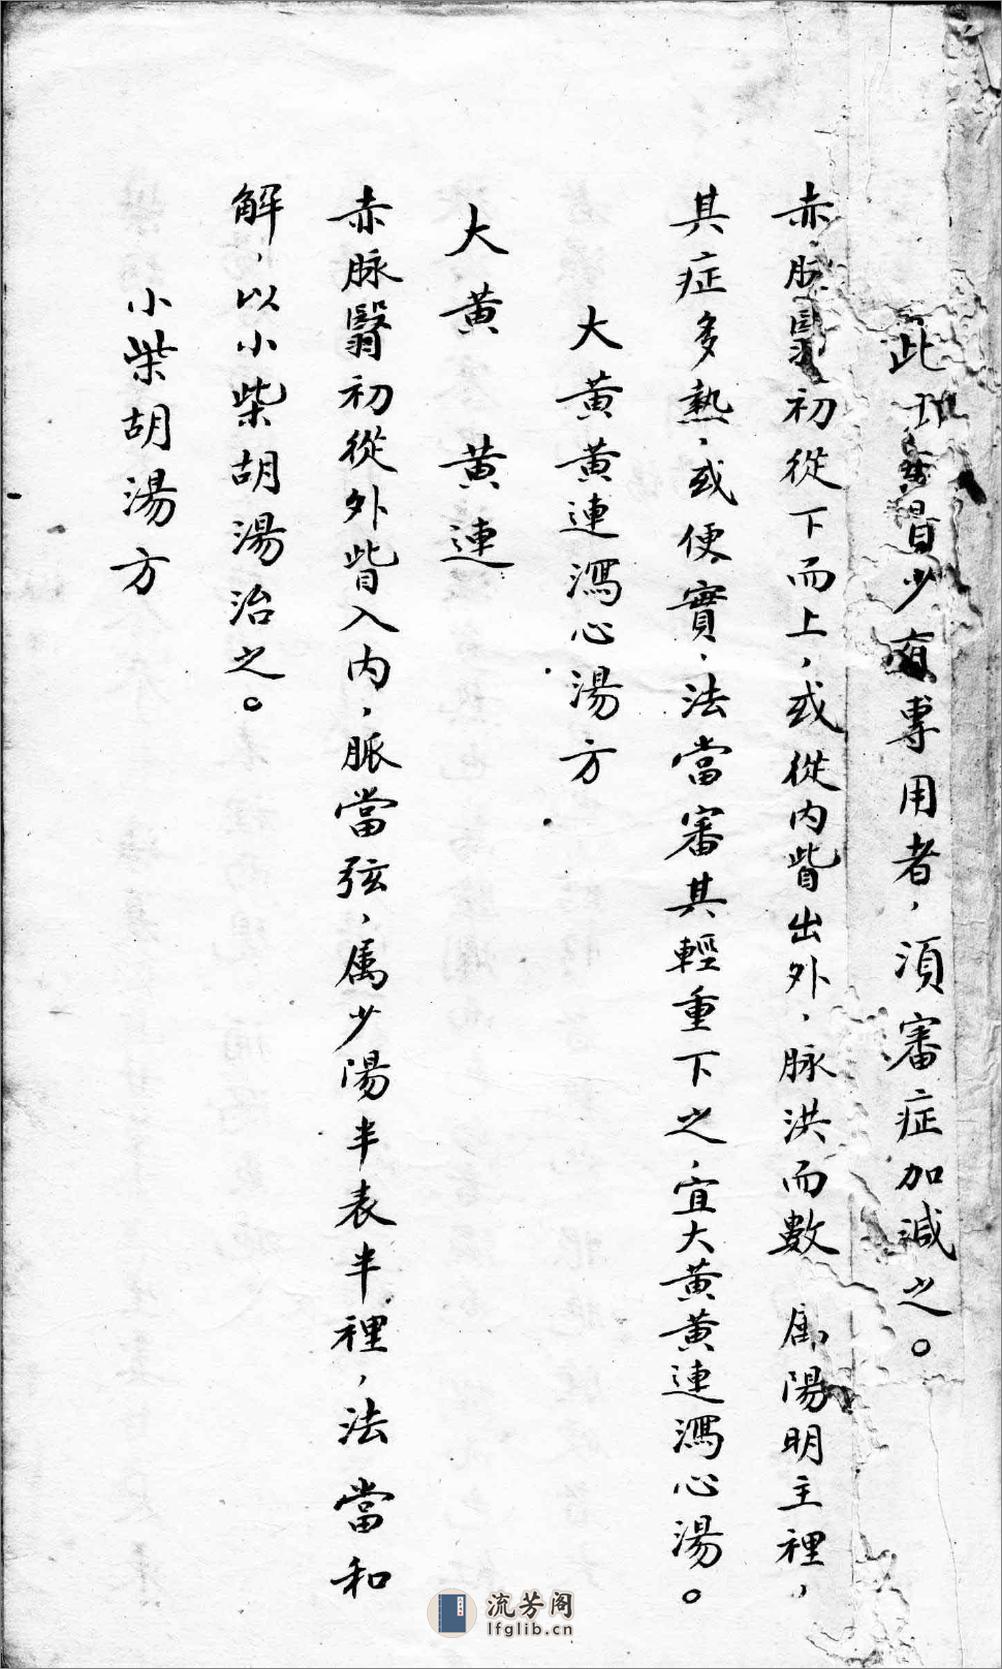 此 昔少有專用者，須審症加減之。
赤脉翳初從下而上，或從内眥出外，脉洪而數 属陽明主裡，
其症多熱，或便實，法當審其輕重下之，宜大黄黄連瀉心湯。
大黄黄連瀉心湯方
大黄 黄連
赤脈翳初從外眥入内，脈當弦，属少陽半表半裡，法當和
解，以小柴胡湯治之。
小柴胡湯方
流芳阁
lfglib.cn